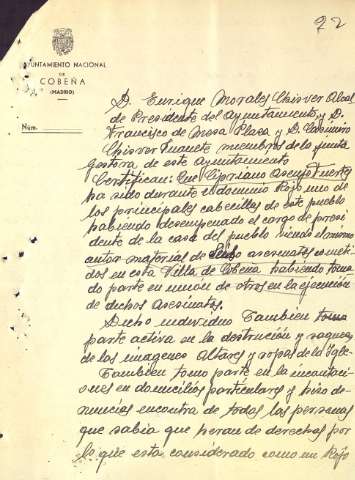 22
AYUNTAMIENTO NACIONAL
DE
COBEÑA
(MADRID)
Núm.
D. Enrique Morales Chisver Alcal
de Presidente del Ayuntamiento, y D.
Francisco de Mesa Plaza y D. Casimiro
Chisver miembros de la junta
gestora de este Ayuntamiento
Certifican: Que Cipriano Asenjo Fuertes
ha sido durante el dominio Rojo uno de
los principales cabecillas de este pueblo
habiendo desempenado el cargo de presi
dente de la casa del pueblo siendo el mismo
autor material de seis asesenatos cometi
dos en esta Villa de Cobeña habiendo toma
do parte en union de otros en la ejecución
de dichos asesinatos.
Dicho individuo Tambien tomo
parte activa en la destrución y saqueo
de las imagenes Altares y ropas de la Igle-
Tambien tomo parte en la incautaci
ones en domicilios particulares y hizo de-
nuncias encontra de todas las personas
que sabia que heran de derechas por
lo que esta considerado como un Rojo